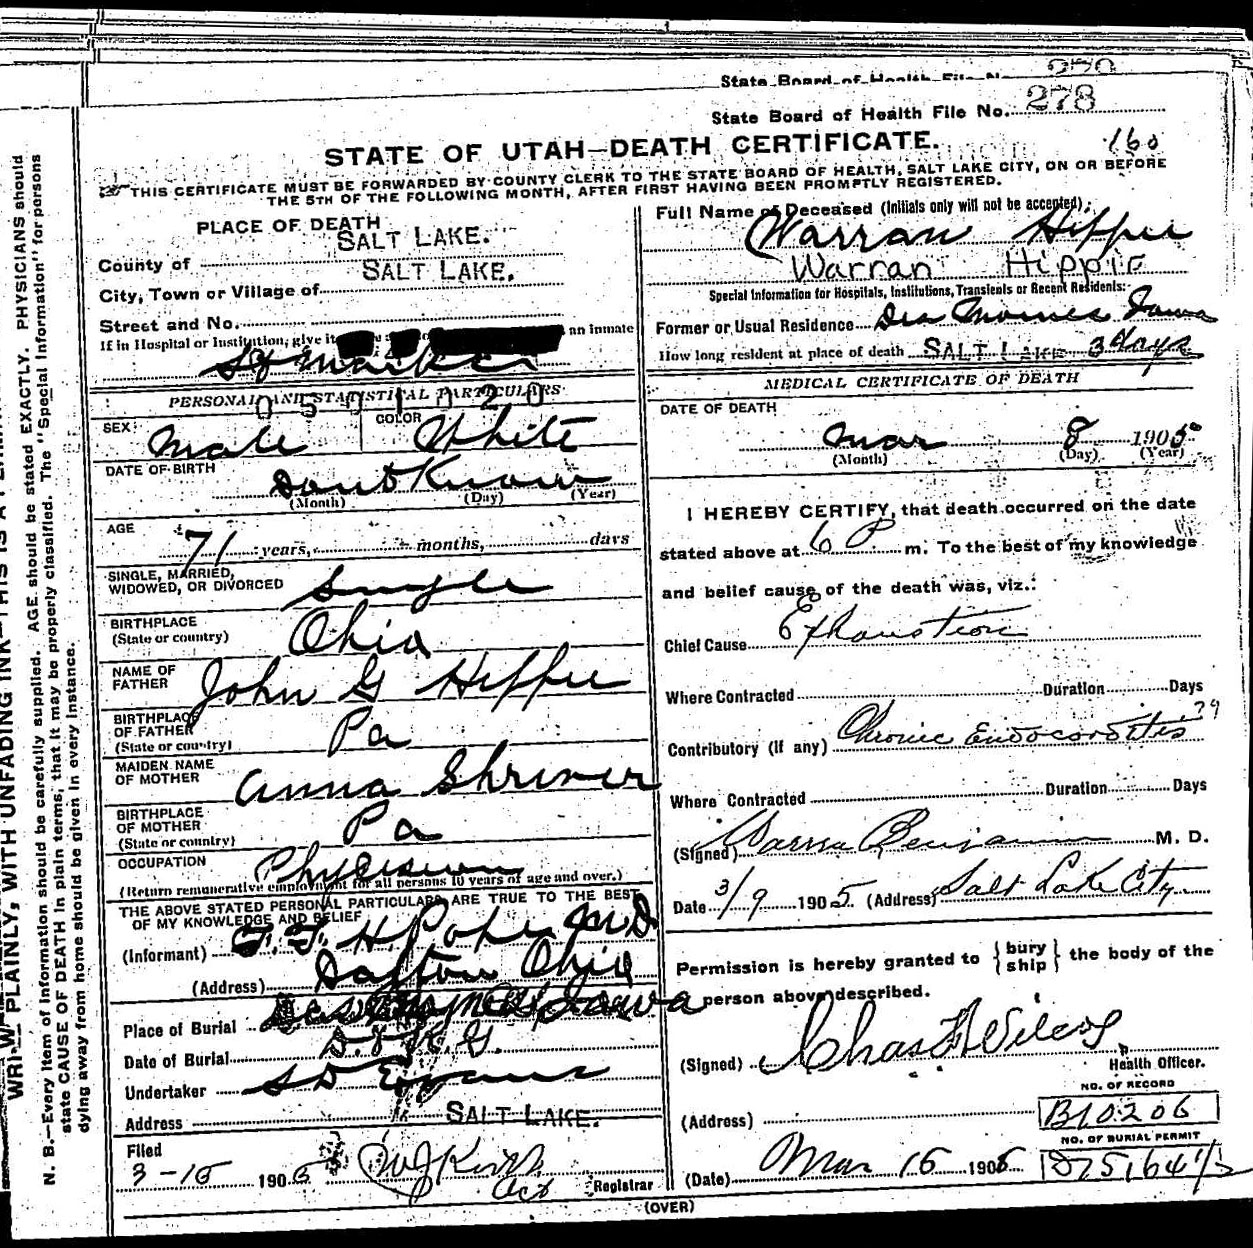 State Board of Health File No. 278
State Board of Health File No. 278
160
STATE OF UTAH—DEATH CERTIFICATE.
THIS CERTIFICATE MUST BE FORWARDED BY COUNTY CLERK TO THE STATE BOARD OF HEALTH, SALT LAKE CITY, ON OR BEFORE
THE 5TH OF THE FOLLOWING MONTH, AFTER FIRST HAVING BEEN PROMPTLY REGISTERED.
PLACE OF DEATH
County of SALT LAKE.
City, Town or Village of SALT LAKE.
Street and No.
If in Hospital or Institution, give it an inmate
PERSONAL AND STATISTICAL PARTICULARS
0501020
SEX Male COLOR White
DATE OF BIRTH Dont Know
(Month) (Day) (Year)
AGE 71 years, months, days
SINGLE, MARRIED,
WIDOWED, OR DIVORCED Single
BIRTHPLACE
(State or country) Ohio
NAME OF
FATHER John G Hippee
BIRTHPLACE
OF FATHER
(State or country) Pa
MAIDEN NAME
OF MOTHER Anna Shriver
BIRTHPLACE
OF MOTHER
(State or country) Pa
OCCUPATION Physician
(Return remunerative employment for all persons 10 years of age and over.)
THE ABOVE STATED PERSONAL PARTICULARS ARE TRUE TO THE BEST
OF MY KNOWLEDGE AND BELIEF
(Informant) H Pope M D
(Address) Dayton Ohio
Place of Burial Des Moines Iowa
Date of Burial
Undertaker S D Evans
Address SALT LAKE.
Filed
3-15 1905 Registrar
Full Name of Deceased (Initials only will not be accepted):
Warran Hippee
Warran Hippie
Special Information for Hospitals, Institutions, Transients or Recent Residents:
Former or Usual Residence Des Moines Iowa
How long resident at place of death SALT LAKE 3 days
MEDICAL CERTIFICATE OF DEATH
DATE OF DEATH
Mar 8 1905
(Month) (Day) (Year)
I HEREBY CERTIFY, that death occurred on the date
stated above at 6 P m. To the best of my knowledge
and belief cause of the death was, viz.:
Chief Cause Exhaustion
Where Contracted Duration Days
79
Contributory (If any) Chronic Endocarditis
Where Contracted Duration Days
(Signed) Benjamin M. D.
Date 3/9 1905 (Address) Salt Lake City
Permission is hereby granted to { bury ship } the body of the
person above described.
(Signed) Chas F Wilcox
Health Officer.
NO. OF RECORD
(Address) B10206
NO. OF BURIAL PERMIT
(Date) Mar 15 1905 D75164 1/2
(OVER)
N. B.—Every item of information should be carefully supplied. AGE should be stated EXACTLY. PHYSICIANS should
state CAUSE OF DEATH in plain terms, that it may be properly classified. The "Special Information" for persons
dying away from home should be given in every instance.
PLAINLY, WITH UNFADING INK—THIS IS A